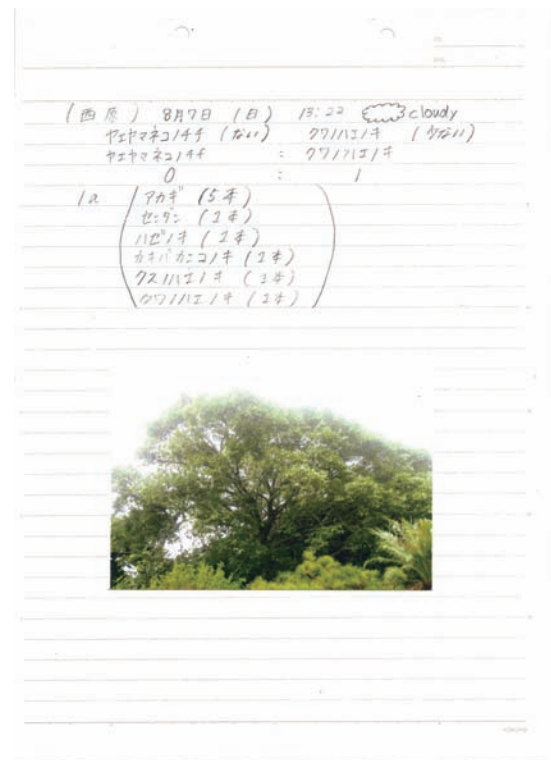 (西原) 8月7日 (日) 13:22 cloudy
ヤエヤマネコノチチ (ない) クワノハエノキ (少ない)
ヤエヤマネコノチチ : クワノハエノキ
0 : 1
1a アカギ (5本)
センダン (1本)
ハゼノキ (1本)
カキバカンコノキ (1本)
クスノハエノキ (1本)
クワノハエノキ (1本)